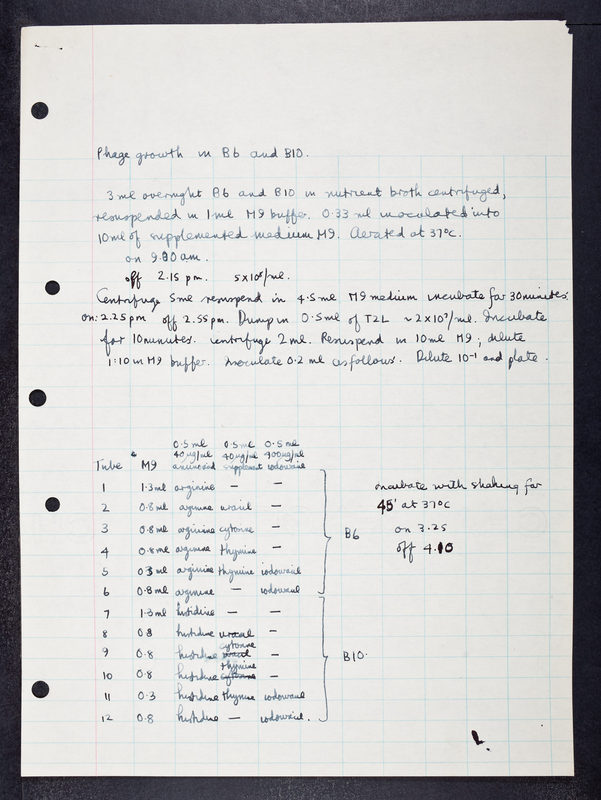 Phage growth in B6 and B10.
3 ml overnight B6 and B10 in nutrient broth centrifuged,
resuspended in 1 ml M9 buffer. 0.33 ml inoculated into
10 ml of supplemented medium M9. Aerated at 37°C.
on 9.00 am.
off 2.15 pm. 5x10⁸/ml.
Centrifuge 5 ml resuspend in 4.5 ml M9 medium incubate for 30 minutes.
on: 2.25 pm off 2.55 pm. Dump in 0.5 ml of T2L ~ 2x10⁹/ml. Incubate
for 10 minutes. Centrifuge 2 ml. Resuspend in 10 ml M9; dilute
1:10 in M9 buffer. Inoculate 0.2 ml as follows. Dilute 10⁻¹ and plate.
0.5 ml 0.5 ml 0.5 ml
40 µg/ml 40 µg/ml 400 µg/ml
Tube M9 aminoacid supplement iodouracil
1 1.3 ml arginine — —
2 0.8 ml arginine uracil —
3 0.8 ml arginine cytosine — incubate with shaking for
4 0.8 ml arginine thymine — 45' at 37°C
B6 on 3.25
off 4.10
5 0.3 ml arginine thymine iodouracil
6 0.8 ml arginine — iodouracil
7 1.3 ml histidine — —
8 0.8 histidine uracil —
9 0.8 histidine cytosine —
B10.
10 0.8 histidine thymine —
11 0.3 histidine thymine iodouracil
12 0.8 histidine — iodouracil.